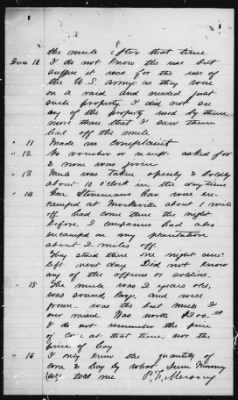 the mule after that time
Ques 10 I do not know the use but
suppose it was for the use of
the U.S. army as they were
on a raid and needed just
such property I did not see
any of the property used by them
more than that I saw them
lead off the mule
" 11 Made no complaint
" 12 No voucher or receipt asked for
& none was given
" 13 Mule was taken openly & 
about 10 o'clock in the day time
" 14 Gen Stonemans had were
camped at Mocksville about 1 mile
off had come there the night
before. 1 companies had also
encamped on my plantation
about 2 miles off
They staid there one night and
left next day Did not know
any of the officers or soldiers.
" 15 The mule was 2 years old,
was sound, large, and well
grown was the best mule I
ever raised Was worth $200.00
I do not remember the price
of corn at that time, nor the
price of hay
" 16 I only knew the quantity of
corn & hay by what
told me P. F. Meroney